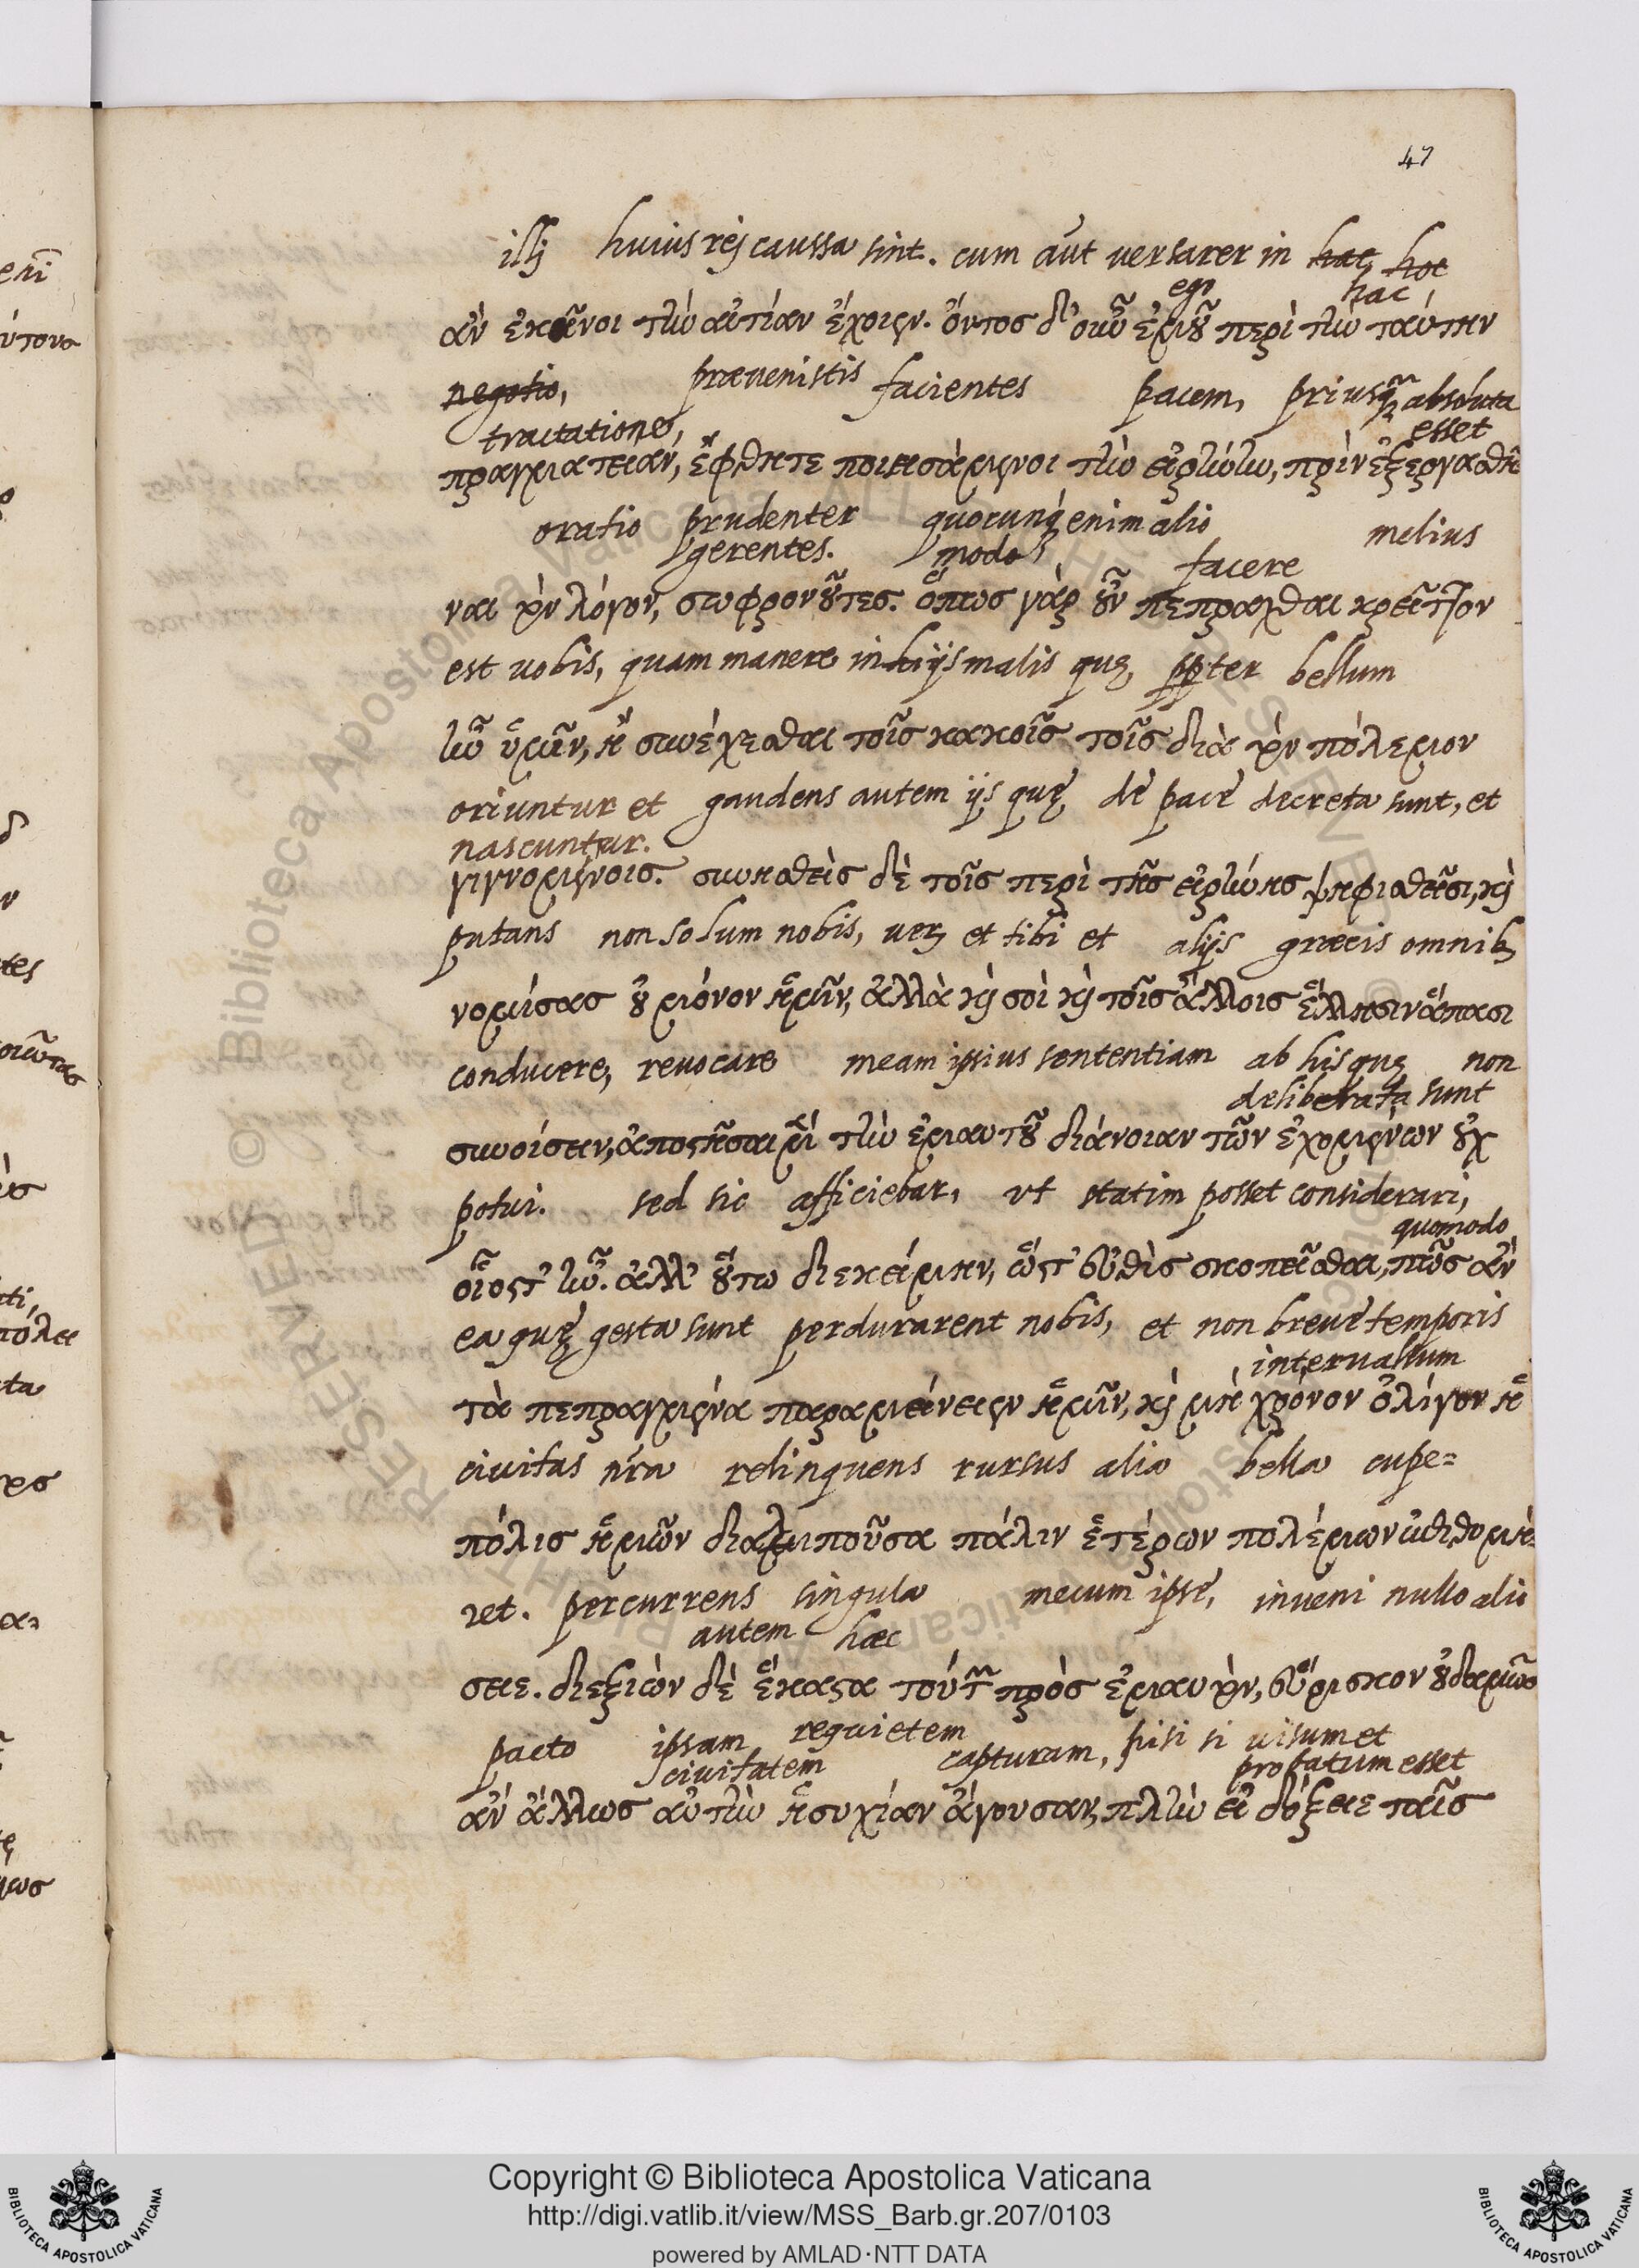 47
illj huius rej caussa sint. cum aūt uersarer in hac hoc
ego hac
ἂν ἐκεῖνοι τὴν αἰτίαν ἔχοιεν. ὄντος δ' οὖν ἐμοῦ περὶ τὴν ταύτην
negotio, præuenistis facientes pacem, priusq̃ absoluta
tractatione, esset
πραγματείαν, ἔφθητε ποιησάμενοι τὴν εἰρήνην, πρὶν ἐξεργασθῆ
oratio prudenter quocunq; enim alio melius
gerentes. modo facere
ναι τὸν λόγον, σωφρονοῦντες. ὅπως γὰρ οὖν πεπρᾶχθαι κρεῖττον
est uobis, quam manere in hijs malis quę ꝓpter bellum
ἦν ὑμῖν, ἢ συνέχεσθαι τοῖς κακοῖς τοῖς διὰ τὸν πόλεμον
oriuntur et gaudens autem ijs quę de pace decreta sunt, et
nascuntur.
γιγνομένοις. συνησθεὶς δὲ τοῖς περὶ τῆς εἰρήνης ψηφισθεῖσι, καὶ
putans non solum nobis, uerũ et tibi et alijs græcis omnib;
νομίσας οὐ μόνον ἡμῖν, ἀλλὰ καὶ σοὶ καὶ τοῖς ἄλλοις ἕλλησιν ἅπασι
conducere, reuocare meam ipsius sententiam ab his quę non
deliberata sunt
συνοίσειν, ἀποστῆσαι μὲν τὴν ἐμαυτοῦ διάνοιαν τῶν ἐχομένων οὐχ
potui. sed sic afficiebar, ut statim posset considerari,
quomodo
οἷός τ' ἦν. ἀλλ' οὕτω διεκείμην, ὥστ' εὐθὺς σκοπεῖσθαι, πῶς ἂν
ea quę gesta sunt perdurarent nobis, et non breue temporis
interuallum
τὰ πεπραγμένα παραμείνειεν ἡμῖν, καὶ μὴ χρόνον ὀλίγον ἡ
ciuitas nr̃a relinquens rursus alia bella cupe=
πόλις ἡμῶν διαλιποῦσα πάλιν ἑτέρων πολέμων ἐπιθυμή=
ret. percurrens singula mecum ipse, inueni nullo alio
autem hæc
σειε. διεξιὼν δὲ ἕκαστα τούτων πρὸς ἐμαυτὸν, εὕρισκον οὐδαμῶς
pacto ipsam requietem capturam, nisi si uisum et
ciuitatem probatum esset
ἂν ἄλλως αὐτὴν ἡσυχίαν ἄγουσαν, πλὴν εἰ δόξειε ταῖς
Copyright © Biblioteca Apostolica Vaticana
http://digi.vatlib.it/view/MSS_Barb.gr.207/0103
powered by AMLAD·NTT DATA